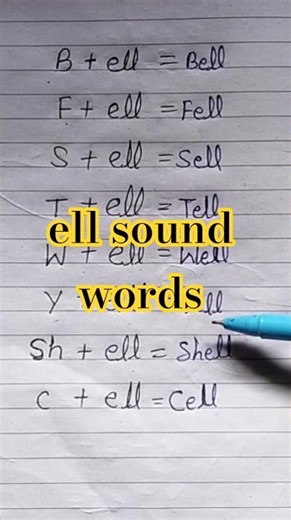 B + ell = Bell
F + ell = Fell
S + ell = Sell
T + ell = Tell
ell sound
W + ell = Well
words
Y
Sh + ell = Shell
c + ell = Cell